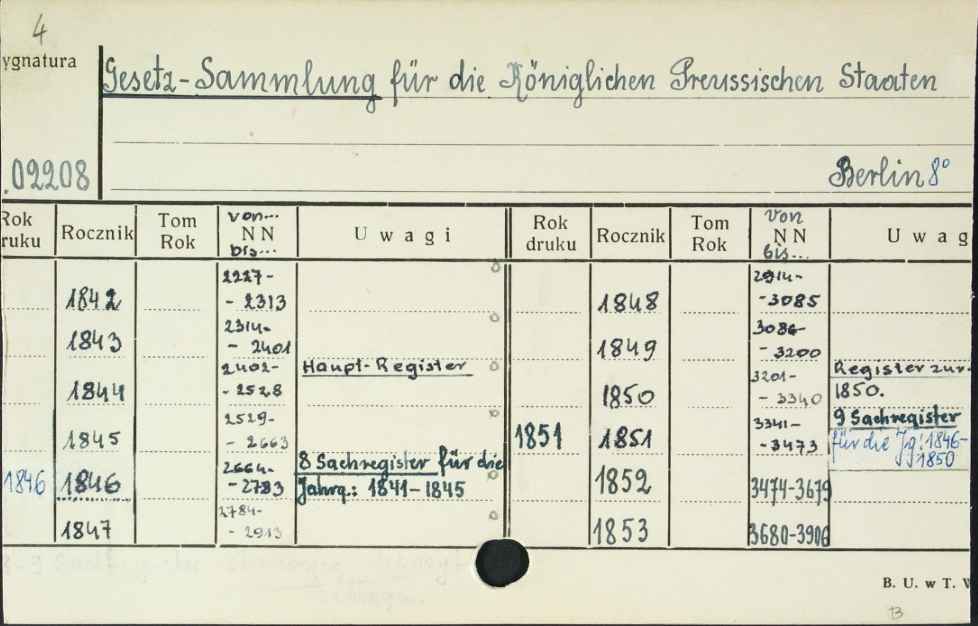 4
ygnatura
Gesetz-Sammlung für die Königlichen Preussischen Staaten
.02208
Berlin 8°
Rok druku Rocznik Tom Rok von... NN bis... Uwagi Rok druku Rocznik Tom Rok von NN bis... Uwag
1842 2227- - 2313
1843 2314- - 2401
1844 2402- - 2528 Haupt-Register
1845 2529- - 2663
1846 1846 2664- - 2783 8 Sachregister für die Jahrg.: 1841-1845
1847 2784- - 2913
1848 2914- - 3085
1849 3086- - 3200
1850 3201- - 3340 Register zur 1850.
1851 1851 3341- - 3473 9 Sachregister für die Jg: 1846-1850
1852 3474-3679
1853 3680-3906
B. U. w T.
B